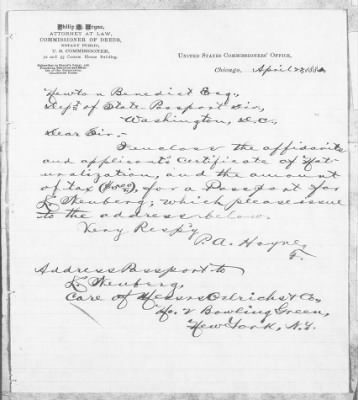 Philip A. Hoyne,
ATTORNEY AT LAW,
COMMISSIONER OF DEEDS,
NOTARY PUBLIC,
U. S. COMMISSIONER,
Custom House Building
UNITED STATES COMMISSIONERS' OFFICE,
Chicago, April 188
Newton Benedict Esq,
Dept of State Passport Div,
Washington, D.C,
Dear Sir,-
I enclose the affidavit
and applicants Certificate of Nat-
uralization, and the amount
of tax for a Passport for
L. Neuberg; which please issue
to the address below.
Very Resp'y
P.A. Hoyne,
Address Passport to
L. Neuberg,
Care of Messrs Oelrichs & Co,
No. 2 Bowling Green,
New York, N.Y.